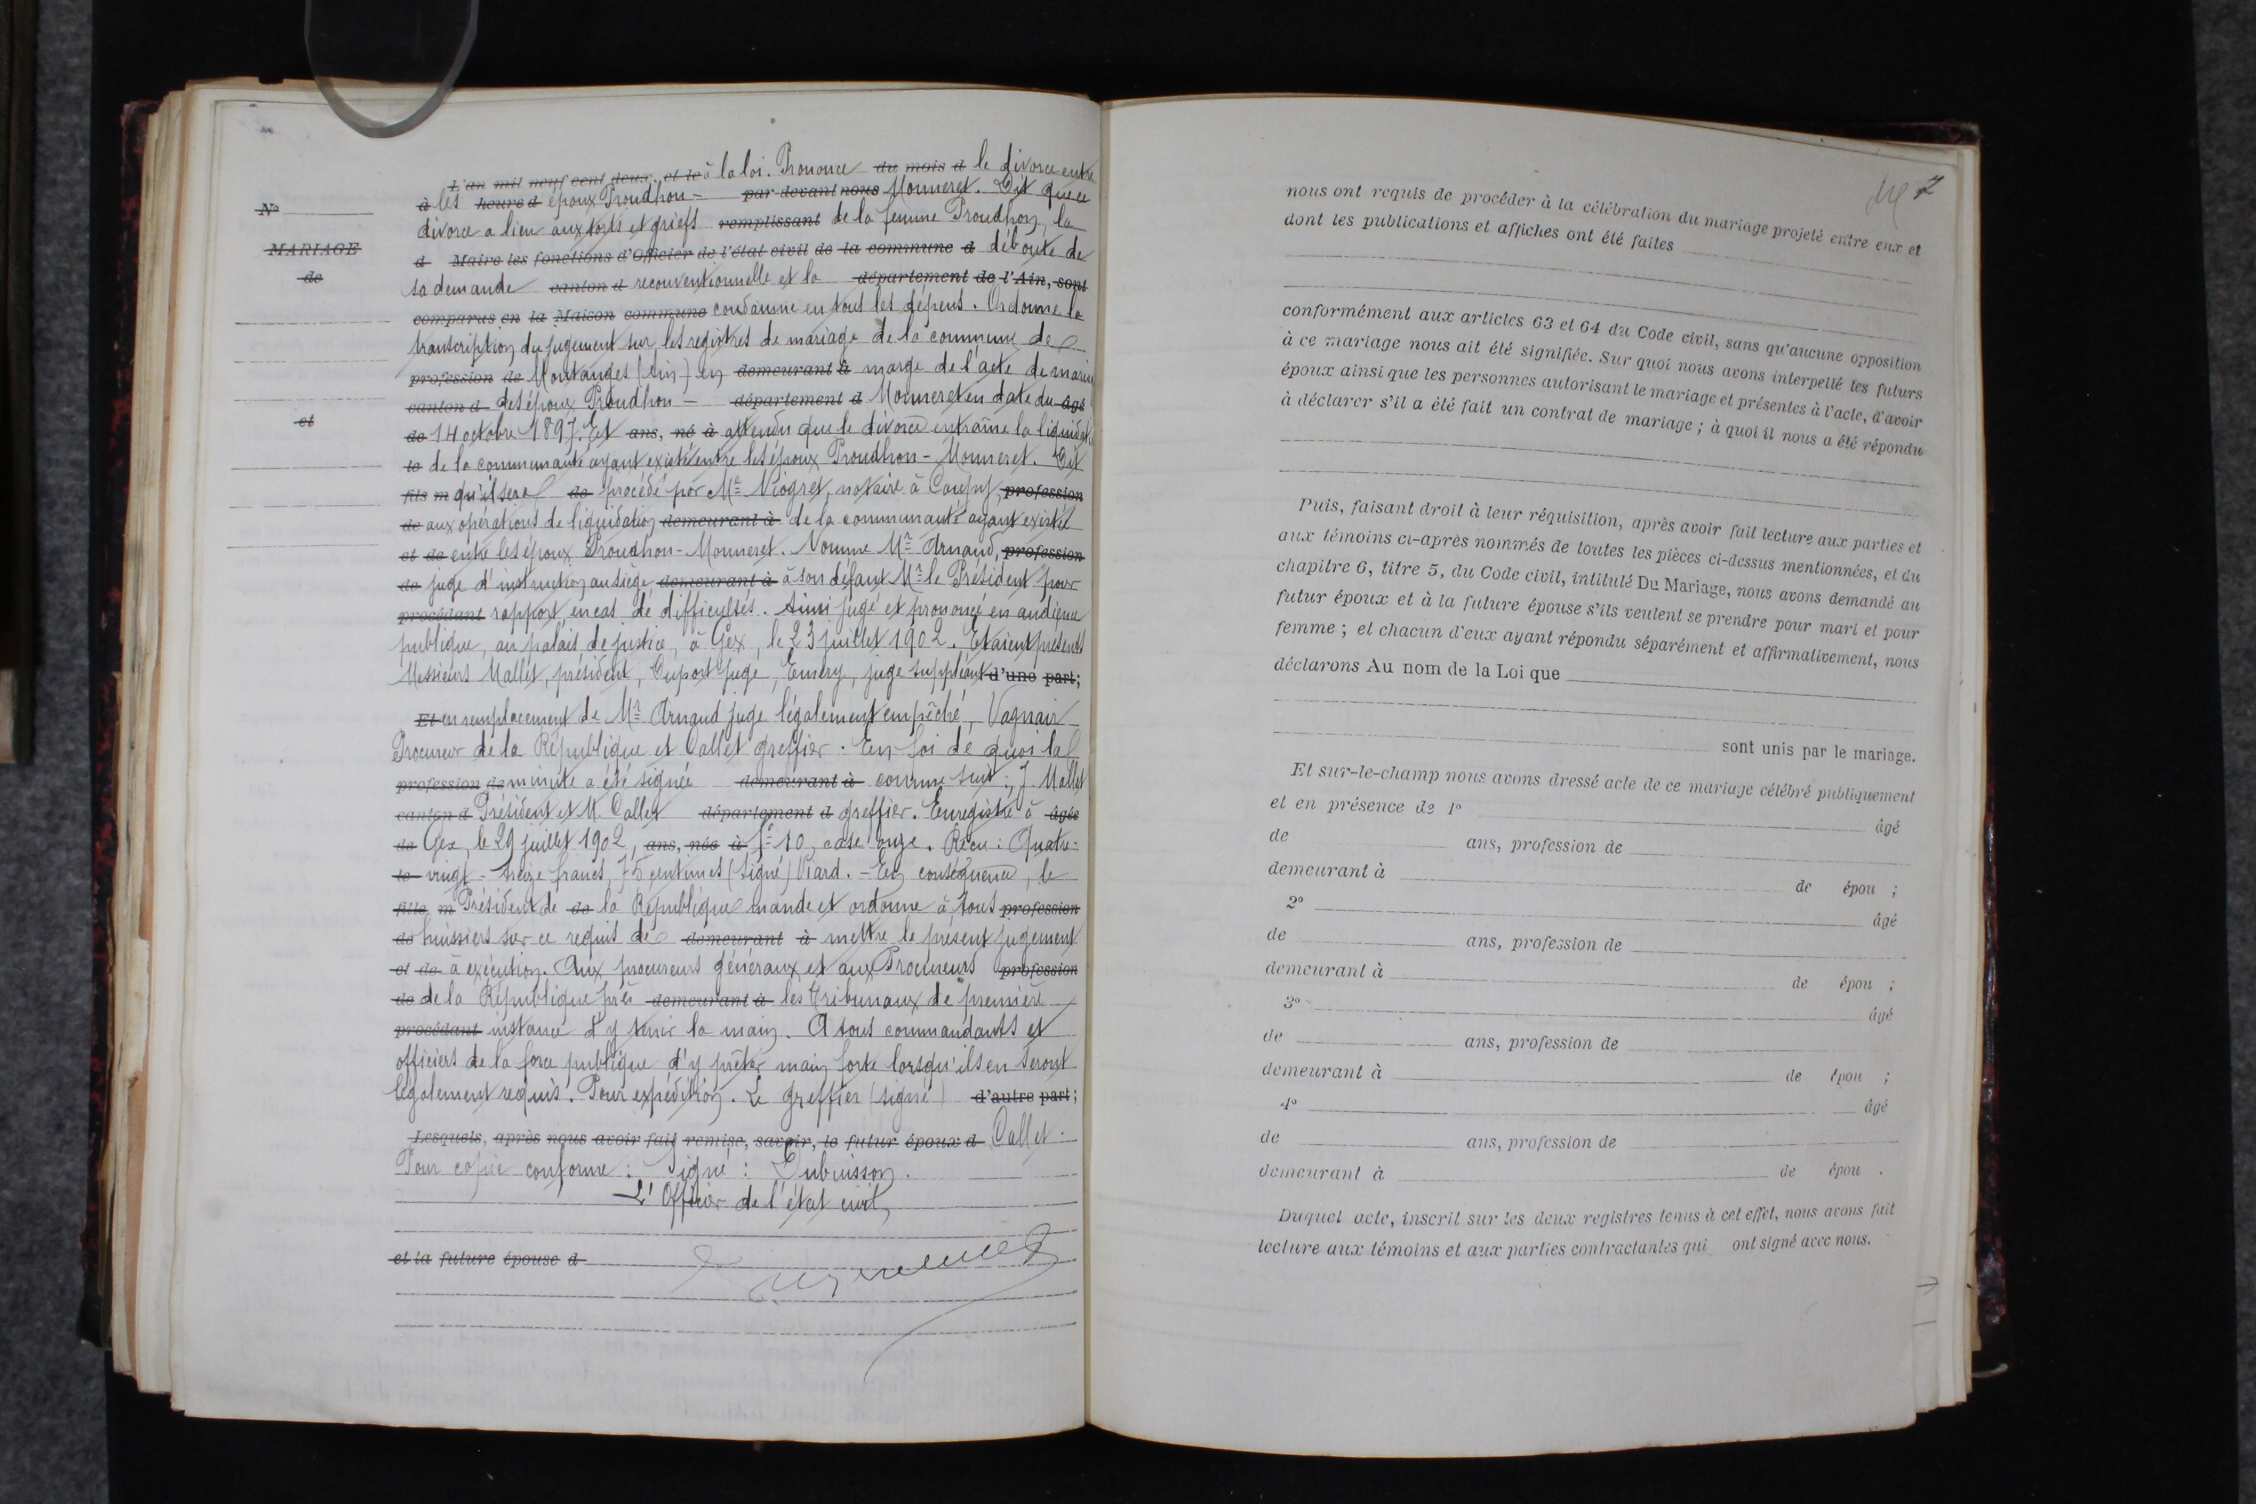 L'an mil neuf cent deux, et le à la loi. Prononce du mois d le divorce entre
à les heure d époux Proudhon - par devant nous Monneret. Dit que ce
divorce a lieu aux torts et griefs remplissant de la femme Proudhon, la
d Maire les fonctions d'Officier de l'état civil de la commune d déboute de
sa demande canton d reconventionnelle et la département de l'Ain, sont
comparus en la Maison commune condamne en tous les dépens. Ordonne la
transcription du jugement sur les registres de mariage de la commune de
profession de Montanges (Ain) en demeurant à marge de l'acte de mariage
canton d des époux Proudhon - département d Monneret en date du âgé
de 14 octobre 1897. Et ans, né à attendu que le divorce entraîne la liquidat
le de la communauté ayant existé entre les époux Proudhon - Monneret. Dit
fils m qu'il sera de procédé par Me Niogret, notaire à Coupy, profession
de aux opérations de liquidation demeurant à de la communauté ayant existé
et de entre les époux Proudhon - Monneret. Nomme Mr Arnaud, profession
de juge d'instruction au siège, demeurant à à son défaut Mr le Président pour
procédant rapport, en cas de difficultés. Ainsi jugé et prononcé en audience
publique, au palais de justice, à Gex, le 23 juillet 1902. Etaient présents
Messieurs Mallet, président, Cuport juge, Emery, juge suppléant d'une part;
Et en remplacement de Mr Arnaud juge légalement empêché, Vagnair
Procureur de la République et Callet greffier. En foi de quoi la
profession de minute a été signée demeurant à comme suit : J. Mallet
canton d Président et M. Callet département d greffier. Enregistré à âgée
de Gex, le 29 juillet 1902, ans, née à fo 10, case onze. Reçu : Quatre-
le vingt-treize francs, 75 centimes (signé) Viard. - En conséquence, le
fille m Président de de la République mande et ordonne à tous profession
de huissiers sur ce requis de demeurant à mettre le présent jugement
et de à exécution. Aux procureurs généraux et aux Procureurs profession
de de la République près demeurant à les tribunaux de première
procédant instance d'y tenir la main. A tous commandants et
officiers de la force publique d'y prêter main forte lorsqu'ils en seront
légalement requis. Pour expédition. Le greffier (signé) d'autre part;
Lesquels, après nous avoir fait remise, savoir, le futur époux d Callet.
Pour copie conforme : Signé : Dubuisson.
L'Officier de l'état civil,
et la future épouse d
No
MARIAGE
de
et
7
nous ont requis de procéder à la célébration du mariage projeté entre eux et
dont les publications et affiches ont été faites
conformément aux articles 63 et 64 du Code civil, sans qu'aucune opposition
à ce mariage nous ait été signifiée. Sur quoi nous avons interpellé les futurs
époux ainsi que les personnes autorisant le mariage et présentes à l'acte, d'avoir
à déclarer s'il a été fait un contrat de mariage ; à quoi il nous a été répondu
Puis, faisant droit à leur réquisition, après avoir fait lecture aux parties et
aux témoins ci-après nommés de toutes les pièces ci-dessus mentionnées, et du
chapitre 6, titre 5, du Code civil, intitulé Du Mariage, nous avons demandé au
futur époux et à la future épouse s'ils veulent se prendre pour mari et pour
femme ; et chacun d'eux ayant répondu séparément et affirmativement, nous
déclarons Au nom de la Loi que
sont unis par le mariage.
Et sur-le-champ nous avons dressé acte de ce mariage célébré publiquement
et en présence de 1o âgé
de ans, profession de
demeurant à de épou ;
2o âgé
de ans, profession de
demeurant à de épou ;
3o âgé
de ans, profession de
demeurant à de épou ;
4o âgé
de ans, profession de
demeurant à de épou .
Duquel acte, inscrit sur les deux registres tenus à cet effet, nous avons fait
lecture aux témoins et aux parties contractantes qui ont signé avec nous.